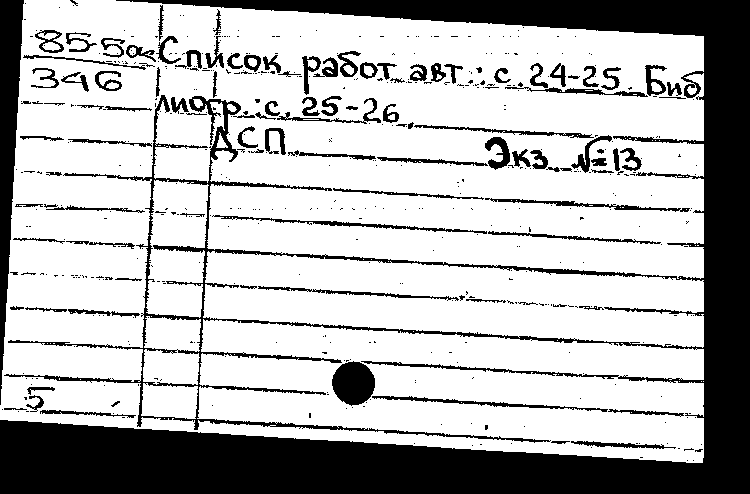 85-5а Список работ авт.: с. 24-25. Биб
346
лиогр.: с. 25-26.
ДСП. Экз. № 13
5